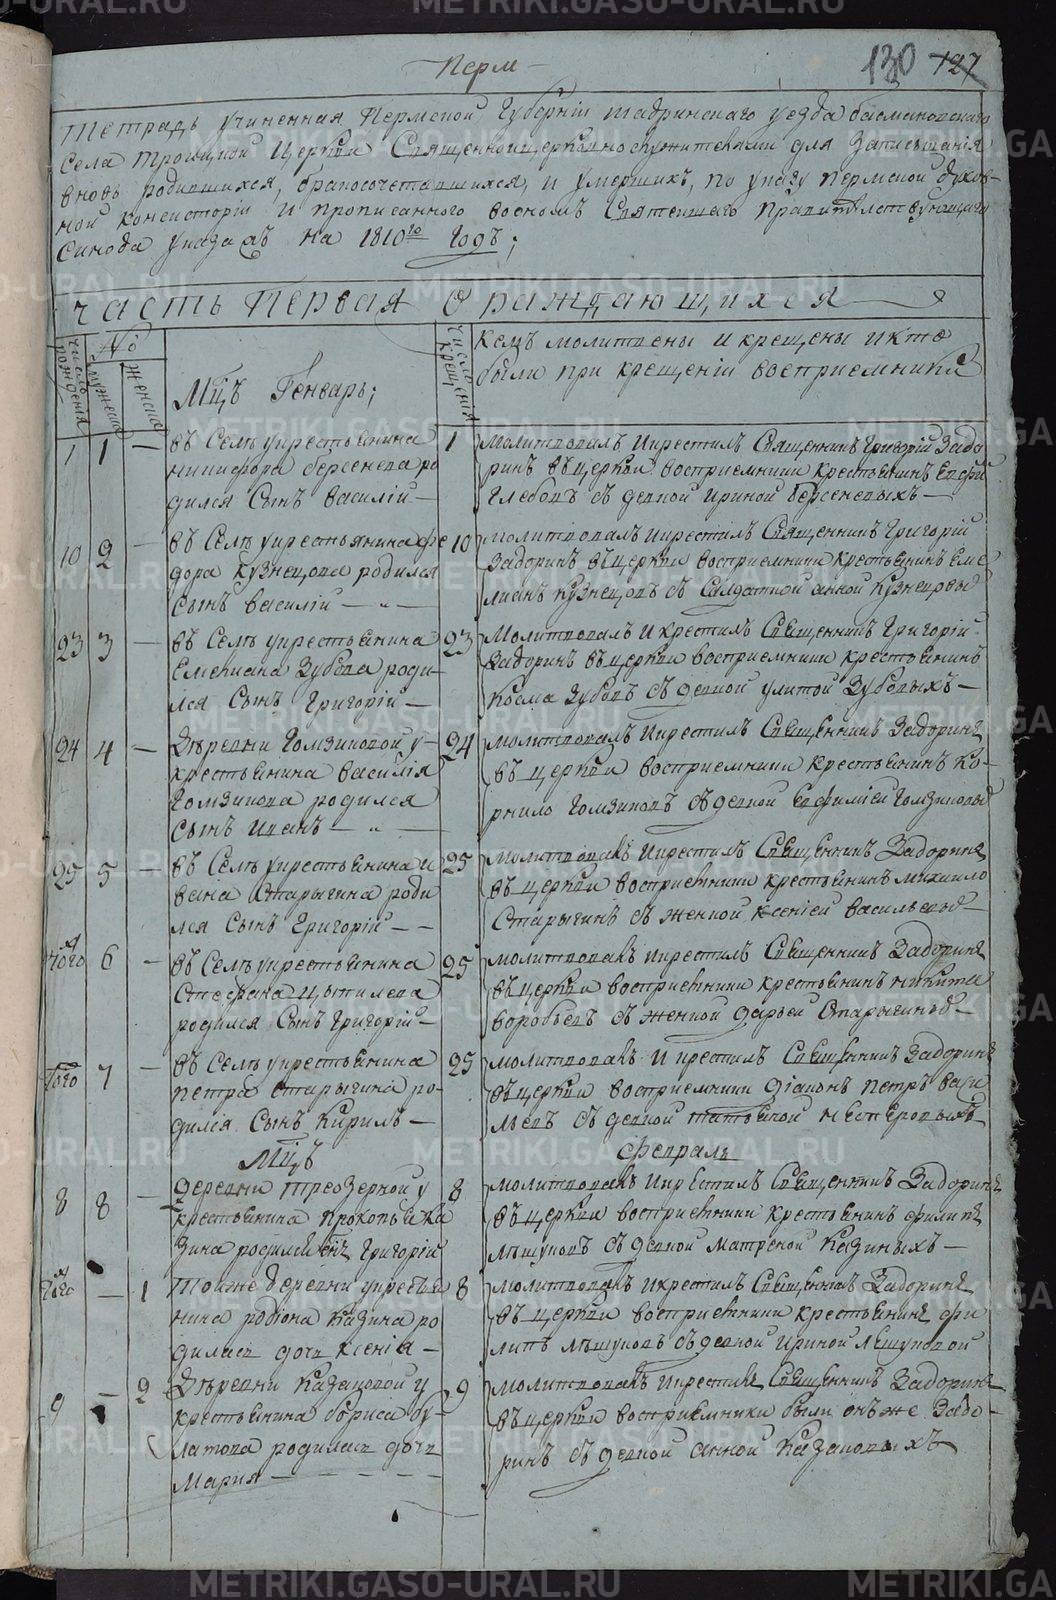 Перм
130 127
Тетрадь учиненная Пермской Губернiи Шадринскаго уезда басмановскаго
села троицкой Церкви Священноицерковнослужителями для записыванiя
вновь родившихся, бракосочетавшихся, и умерших, по указу пермской духов-
ной консисторiи и прописанного воономъ Святейшаго Правителствующаго
Синода указахъ на 1810го Годъ;
Часть Первая О раждающихся
Число рождения
№
мужеска
женска
Мцъ Генварь;
Число крещения
кемъ молитвены и крещены и кто
были при крещенiи восприемники
1 1 — въ Селе укрестьянина
никифора берсенева ро
дился Сынъ василiй —
1 молитвовалъ икрестилъ Священникъ Григорiй Задо
ринъ въ церкви восприемники крестьянинъ
Глебовъ съ девкой ириной берсеневыхъ —
10 2 — въ Селе укрестьянина фе
дора Кузнецова родился
сынъ василiй — „ —
10 молитвовалъ икрестилъ Священникъ Григорiй
Задоринъ въ церкви восприемники крестьянинъ Еме
лианъ Кузнецовъ съ Салдаткой анной Кузнецовы
23 3 — въ Селе укрестьянина
Емелиана Зубова роди-
лся Сынъ Григорiй —
23 Молитвовалъ и крестилъ Священникъ Григорiй
Задоринъ въ церкви восприемники крестьянинъ
Косма Зубовъ съ девкой улитой Зубовыхъ —
24 4 — Деревни Гомзиковой у-
крестьянина василiя
Гомзикова родился
сынъ иванъ — „ —
24 молитвовалъ икрестилъ Священникъ Задоринъ
въ церкви восприемники крестьянинъ Ко-
рнило Гомзиковъ съ девкой Евфимiей Гомзиковы
25 5 — въ Селе укрестьянина и
вана Старыгина роди
лся Сынъ Григорiй — —
25 молитвовалъ икрестилъ Священникъ Задоринъ
въ церкви восприемники крестьянинъ михаило
Старыгинъ съ женкой ксенiей васильевы
Того 6 — въ Селе укрестьянина
Стефана Цыпилева
родился Сынъ Григорiй —
25 молитвовалъ икрестилъ Священникъ Задоринъ
въ церкви восприемники крестьянинъ никита
воробьевъ съ женкой дарьей Старыгины —
Того 7 — въ Селе укрестьянина
петра старыгина ро-
дился Сынъ Кирилъ —
25 молитвовалъ и крестилъ Священникъ Задоринъ
въ церкви восприемники дiаконъ петръ васи
льевъ съ девкой татьяной нестеровыхъ
Мцъ февраль
8 8 — деревни треозерной у
крестьянина прокопья Ка
зина родился Григорiй
8 молитвовалъ икрестилъ Священникъ Задоринъ
въ церкви восприемники крестьянинъ филипъ
лешуковъ съ девкой матреной Казиныхъ —
Того — 1 тойже деревни укрестья
нина родiона Казина ро
дилась дочь ксенiя —
8 молитвовалъ икрестилъ Священникъ Задоринъ
въ церкви восприемники крестьянинъ фи
липъ лешуковъ съ девкой ириной лешуковой
9 — 2 Деревни Казаковой у
крестьянина бориса бу-
латова родилась дочь
Мария — — — — —
9 молитвовалъ икрестилъ Священникъ Задоринъ
въ церкви восприемники были онъже Задо-
ринъ съ девкой анной Казаковыхъ
METRIKI.GASO-URAL.RU